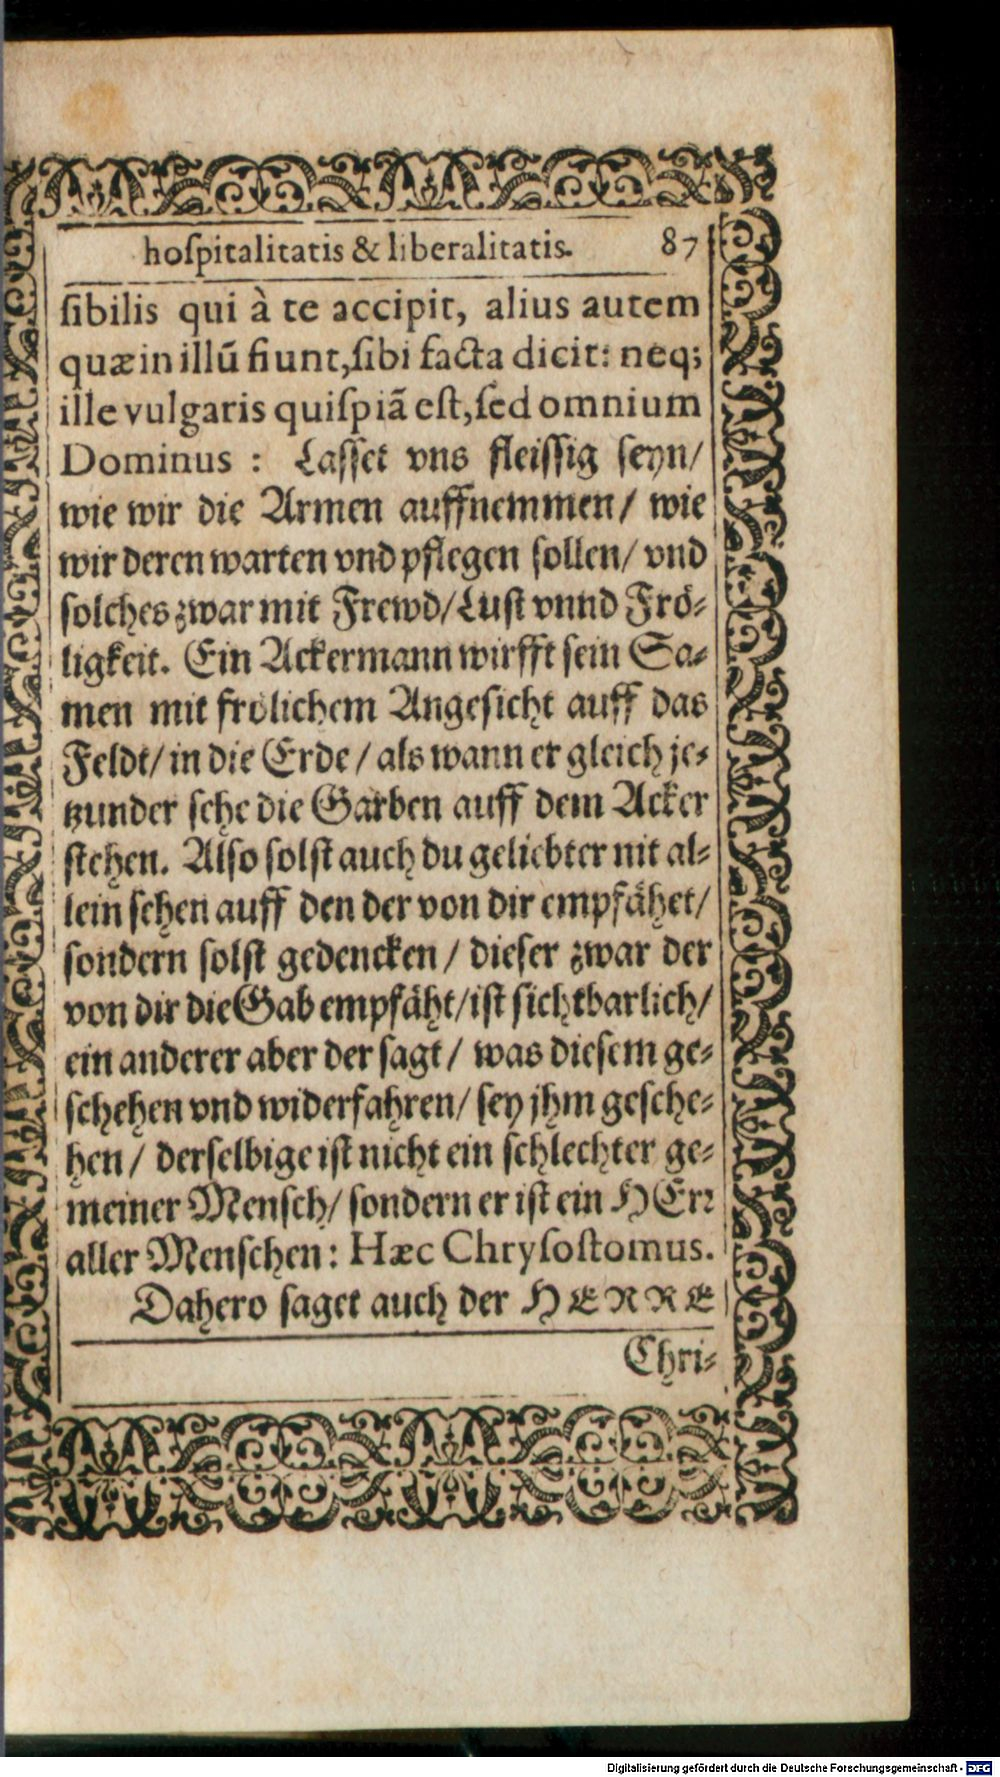 hoſpitalitatis & liberalitatis. 87
ſibilis qui à te accipit, alius autem
quæ in illũ fiunt, ſibi facta dicit: neq;
ille vulgaris quiſpiã eſt, ſed omnium
Dominus : Laſſet vns fleiſſig ſeyn/
wie wir die Armen auffnemmen/ wie
wir deren warten vnd pflegen ſollen/ vnd
ſolches zwar mit Frewd/ Luſt vnnd Frö⸗
ligkeit. Ein Ackermann wirfft ſein Sa⸗
men mit frölichem Angeſicht auff das
Feldt/ in die Erde / als wann er gleich je⸗
tzunder ſehe die Garben auff dem Acker
ſtehen. Alſo ſolſt auch du geliebter nit al⸗
lein ſehen auff den der von dir empfähet/
ſondern ſolſt gedencken / dieſer zwar der
von dir die Gab empfäht/ iſt ſichtbarlich/
ein anderer aber der ſagt / was dieſem ge⸗
ſchehen vnd widerfahren/ ſey jhm geſche⸗
hen / derſelbige iſt nicht ein ſchlechter ge⸗
meiner Menſch/ ſondern er iſt ein HErꝛ
aller Menſchen: Hæc Chryſoſtomus.
Dahero ſaget auch der HERRE
Chri⸗
Digitalisierung gefördert durch die Deutsche Forschungsgemeinschaft - DFG